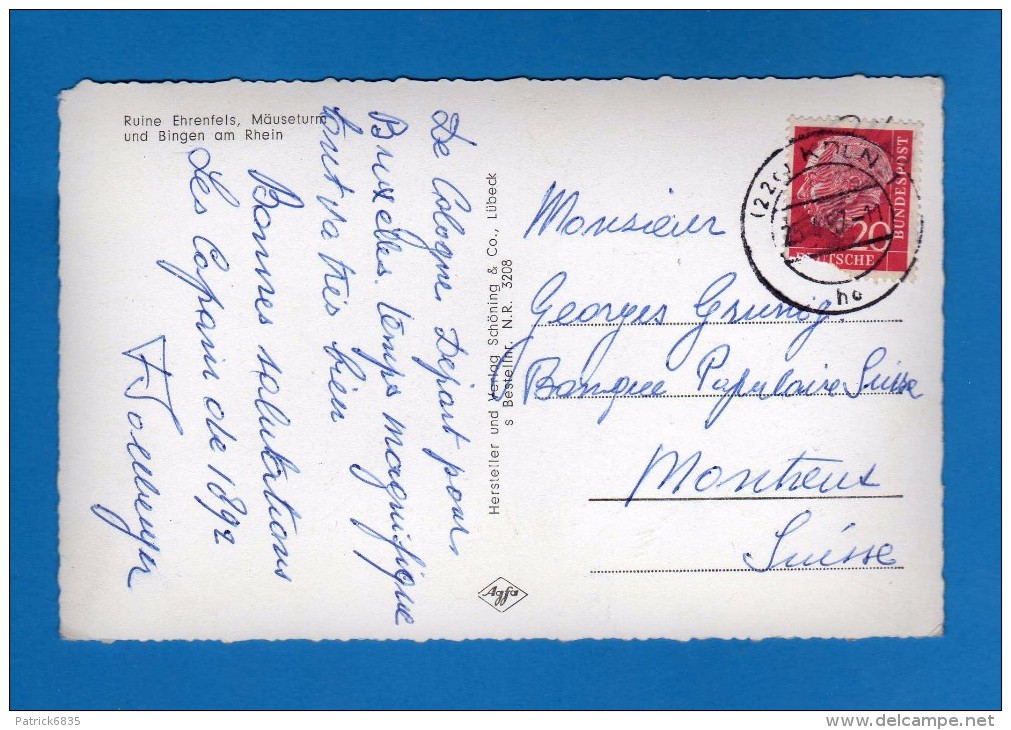 Ruine Ehrenfels, Mäuseturm
und Bingen am Rhein
De Cologne. Départ pour
Bruxelles. Temps magnifique
tout va très bien
Bonnes salutations
Les Copain de 1892
Hersteller und Verlag Schöning & Co., Lübeck
s Bestellnr. N.R. 3208
Agfa
(22c) KÖLN
BUNDESPOST
20
DEUTSCHE
Monsieur
Georges
Banque Populaire Suisse
Montreux
Suisse
Patrick6835
delcampe.net